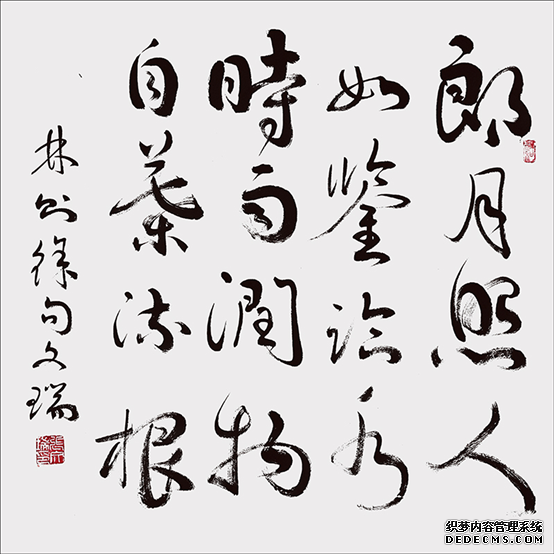 朗月照人
如鑒臨水
時雨潤物
自葉流根
林則徐句文瑞
织梦内容管理系统
DEDECMS.COM